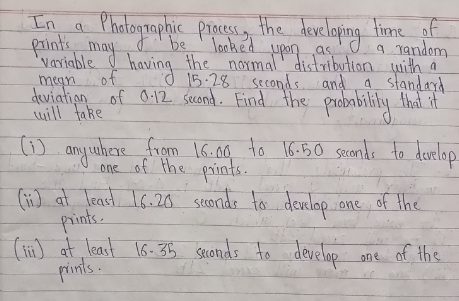 In a Photographic process, the developing time of
prints may be looked upon as a random
variable having the normal distribution with a
mean of 15.28 seconds and a standard
deviation of 0.12 second. Find the probability that it
will take
(i) anywhere from 16.00 to 16.50 seconds to develop
one of the prints.
(ii) at least 16.20 seconds to develop one of the
prints.
(iii) at least 16.35 seconds to develop one of the
prints.